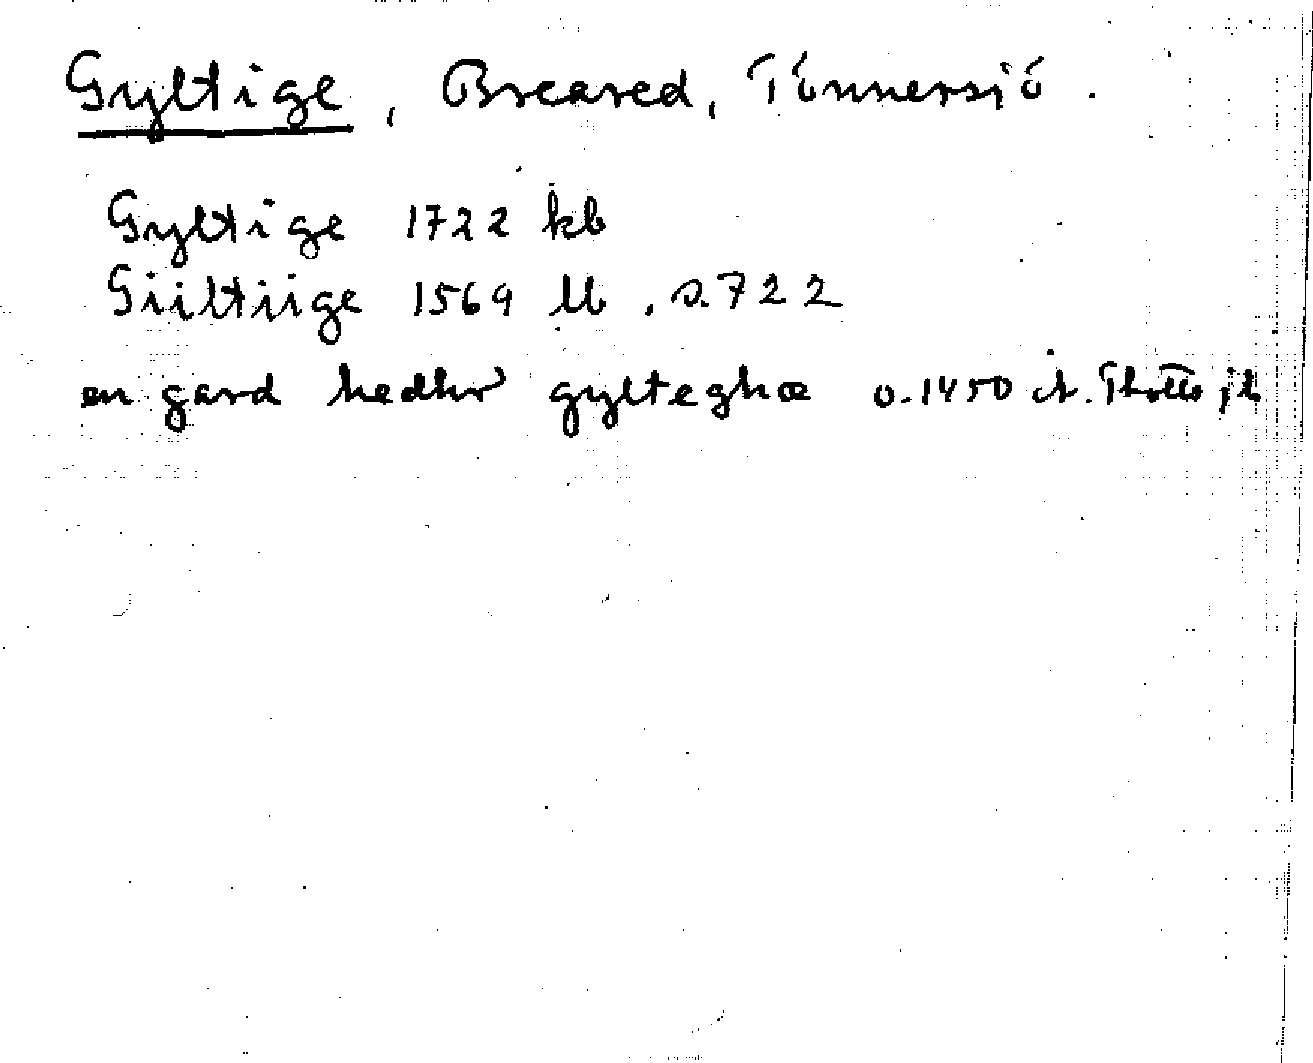 Gyltige, Breared, Tönnersjö.
Gyltige 1722 kb
Giiltiige 1569 lb, s. 722
en gard hedhr gylteghæ o. 1450 A. Thotts jb